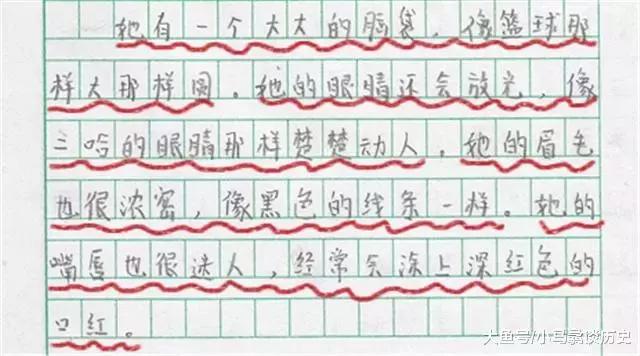 她有一个大大的脑袋，像篮球那
样大那样圆。她的眼睛还会放光，像
三哈的眼睛那样楚楚动人，她的眉毛
也很浓密，像黑色的线条一样。她的
嘴唇也很迷人，经常会涂上深红色的
口红。
大鱼号/小马翕谈历史